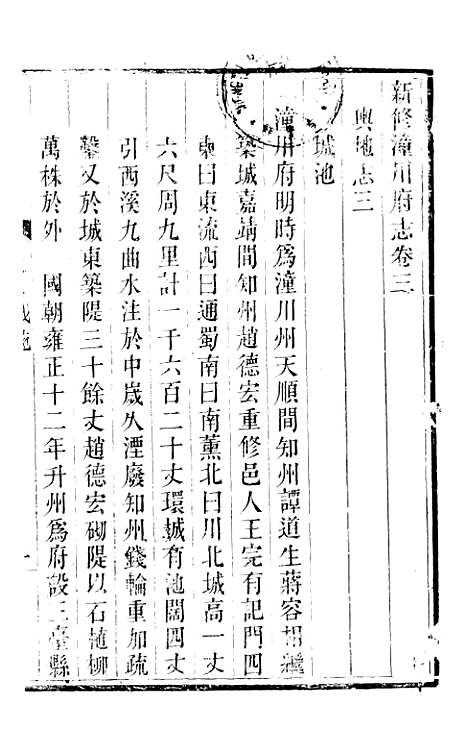 新修潼川府志卷三
輿地志三
城池
潼川府明時爲潼川州天順間知州譚道生蔣容相繼
築城嘉靖間知州趙德宏重修邑人王完有記門四
東曰東流西曰通蜀南曰南薰北曰川北城高一丈
六尺周九里計一千六百二十丈環城有池闊四丈
引西溪九曲水注於中歲久湮廢知州錢輪重加疏
鑿又於城東築隄三十餘丈趙德宏砌隄以石植柳
萬株於外 國朝雍正十二年升州爲府設三臺縣